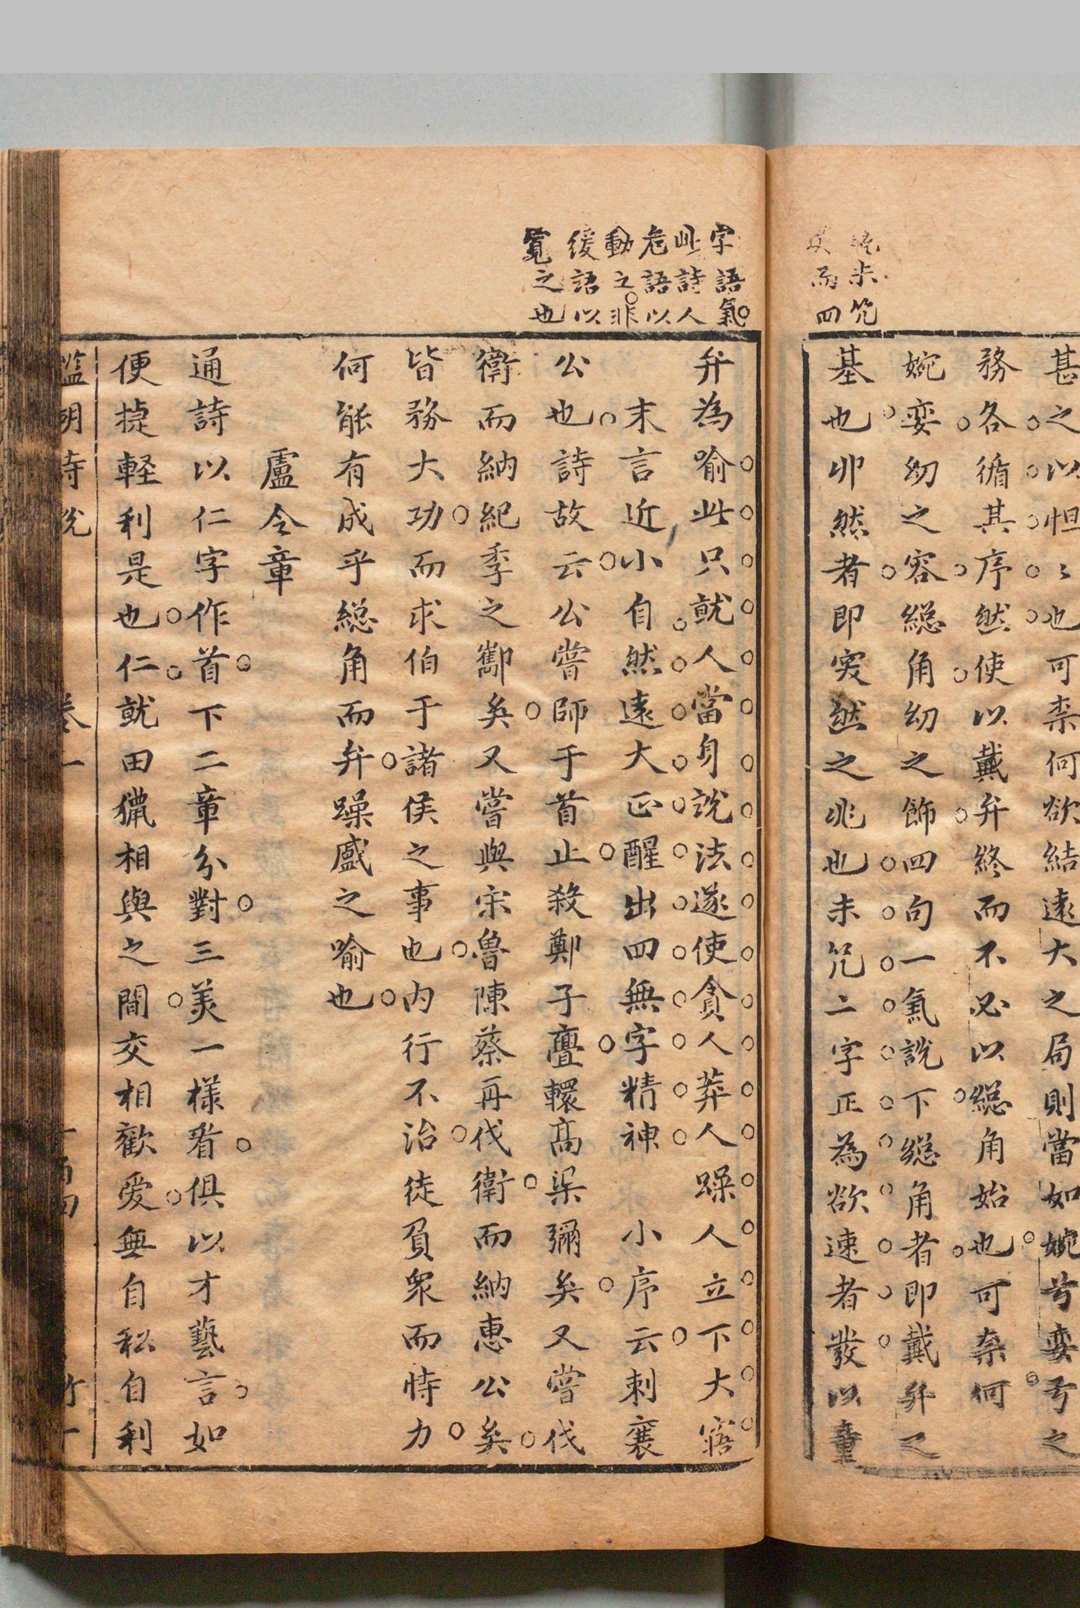 婉未竼
英而四
甚之以怛〻也可柰何欲結遠大之局則當如婉兮孌兮之
務各循其序然使以戴弁終而不必以緫角始也可柰何
婉孌幼之容緫角幼之飾四句一氣說下緫角者即戴弁之
基也丱然者即突然之兆也未竼二字正為欲速者發以童
字語氣
此詩人
危語以
動之非
緩語以
寬之也
弁為喻此只就人當身說法遂使貪人莽人躁人立下大寤
末言近小自然遠大正醒出四無字精神　小序云刺襄
公也詩故云公嘗師于首止殺鄭子亹轘高渠彌矣又嘗伐
衛而納紀季之酅矣又嘗與宋魯陳蔡再伐衛而納惠公矣
皆務大功而求伯于諸侯之事也內行不治徒負衆而恃力
何能有成乎緫角而弁躁盛之喻也
盧令章
通詩以仁字作首下二章分對三美一樣看俱以才藝言如
便捷輕利是也仁就田獵相與之閒交相歡愛無自私自利
詩說
卷一